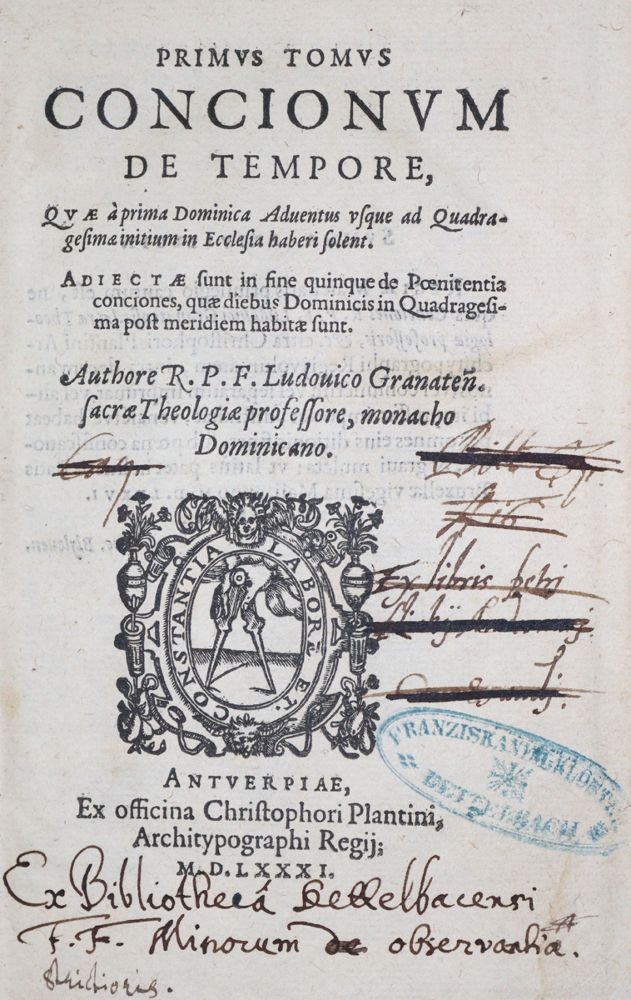 PRIMVS TOMVS
CONCIONVM
DE TEMPORE,
QVÆ à prima Dominica Aduentus vſque ad Quadra-
geſimæ initium in Eccleſia haberi ſolent.
ADIECTÆ ſunt in fine quinque de Pœnitentia
conciones, quæ diebus Dominicis in Quadrageſi-
ma poſt meridiem habitæ ſunt.
Authore R. P. F. Ludouico Granateñ.
ſacræ Theologiæ profeſſore, monacho
Dominicano.
Ex libris petri
CONSTANTIA
LABORE ET
FRANZISKANERKLOSTER
DETTELBACH
ANTVERPIAE,
Ex officina Chriſtophori Plantini,
Architypographi Regij;
M.D.LXXXI.
Ex Bibliothecâ Dettelbacensi
F.F. Minorum de observantiæ.
strictioris.